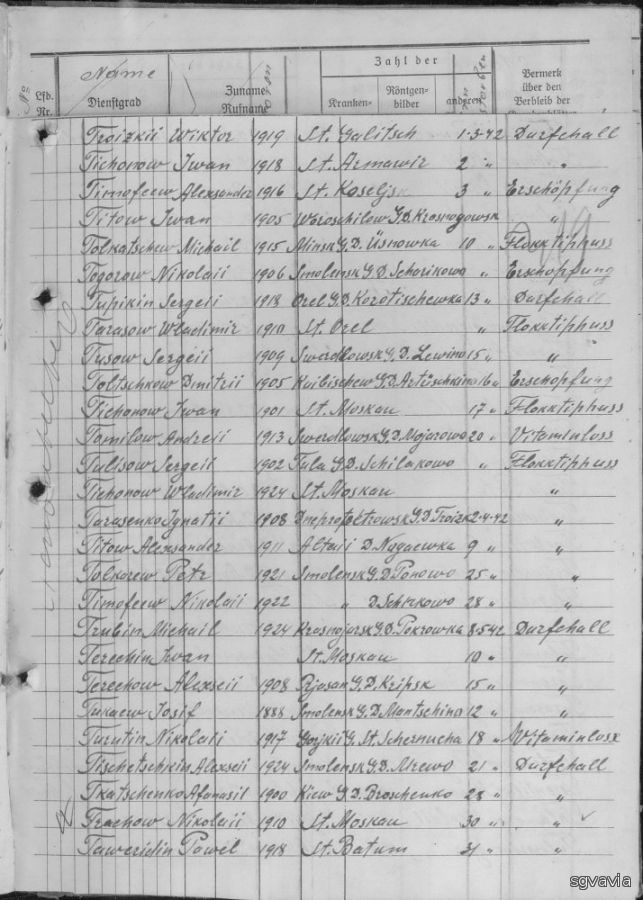 Name
Zahl der
№ Lfd. Nr. Dienstgrad Zuname Rufname Kranken- Röntgen-bilder anderen Vermerk über den Verbleib der
Troizkii Wiktor 1919 St. Galitsch 1·3·42 Durfchall
Tichonow Iwan 1918 St. Armawir 2 " "
Timofeew Alexsander 1916 St. Koseljsk 3 " Erschöpfung
Titow Iwan 1905 Woroschilow G.D. "
Tolkatschew Michail 1915 Minsk G.D. Üsnowka 10 " Flokktiphuss
Togorow Nikolaii 1906 Smolensk G.D. Scharikowo " Erschöpfung
Tupikin Sergeii 1918 Orel G.D. Korotischewka 13 " Durfchall
Tarasow Wladimir 1910 St. Orel " Flokktiphuss
Tusow Sergeii 1909 Swerdlowsk G.D. Lewino 15 " "
Toltschkow Dmitrii 1905 Kuibischew G.D. Artüschkino 16 " Erschöpfung
Tichonow Iwan 1901 St. Moskau 17 " Flokktiphuss
Tomilow Andreii 1913 Swerdlowsk G.D. Mojarowo 20 " Vitaminloss
Tulisow Sergeii 1902 Tula G.D. Schilakowo " Flokktiphuss
Tichonow Wladimir 1924 St. Moskau "
Tarasenko Ignatii 1908 G.D. Troizk 2·4·42 "
Titow Alexsander 1911 Altaii D. Nagaewka 9 " "
Tolkarew Petr 1921 Smolensk G.D. Ponowo 25 " "
Timofeew Nikolaii 1922 " D. Schirkowo 28 " "
Trubin Michail 1924 Krasnojarsk G.D. Pokrowka 8·5·42 Durfchall
Terechin Iwan St. Moskau 10 " "
Terechow Alexseii 1908 Rjasan G.D. Kripsk 15 " "
Tukaew Josif 1888 Smolensk G.D. Mantschino 12 " "
Turutin Nikolaii 1917 Gorjkii G. St. Schernucha 18 " Vitaminloss
Tischetschkin Alexseii 1924 Smolensk G.D. 21 " Durfchall
Tkatschenko Afanasil 1900 Kiew G.D. Broschenko 28 " "
Trachow Nikolaii 1910 St. Moskau 30 " "
Taweridin Pawel 1918 St. Batum 31 " "
sgvavia